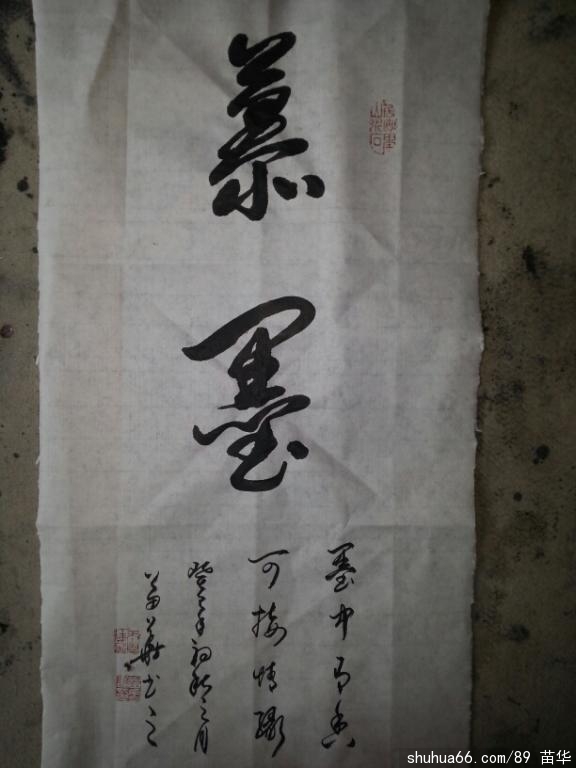 慕墨
墨中有香
可接情
癸巳年初秋之月
苗华书之
shuhua66.com/89 苗华